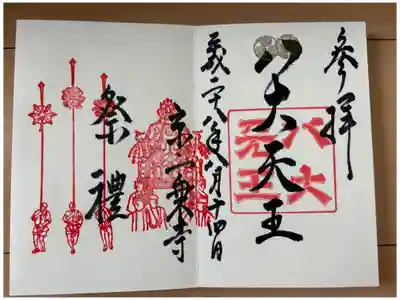 参拝
八大天王
八大
天王
二十八年八月十四日
京一乗寺
祭禮